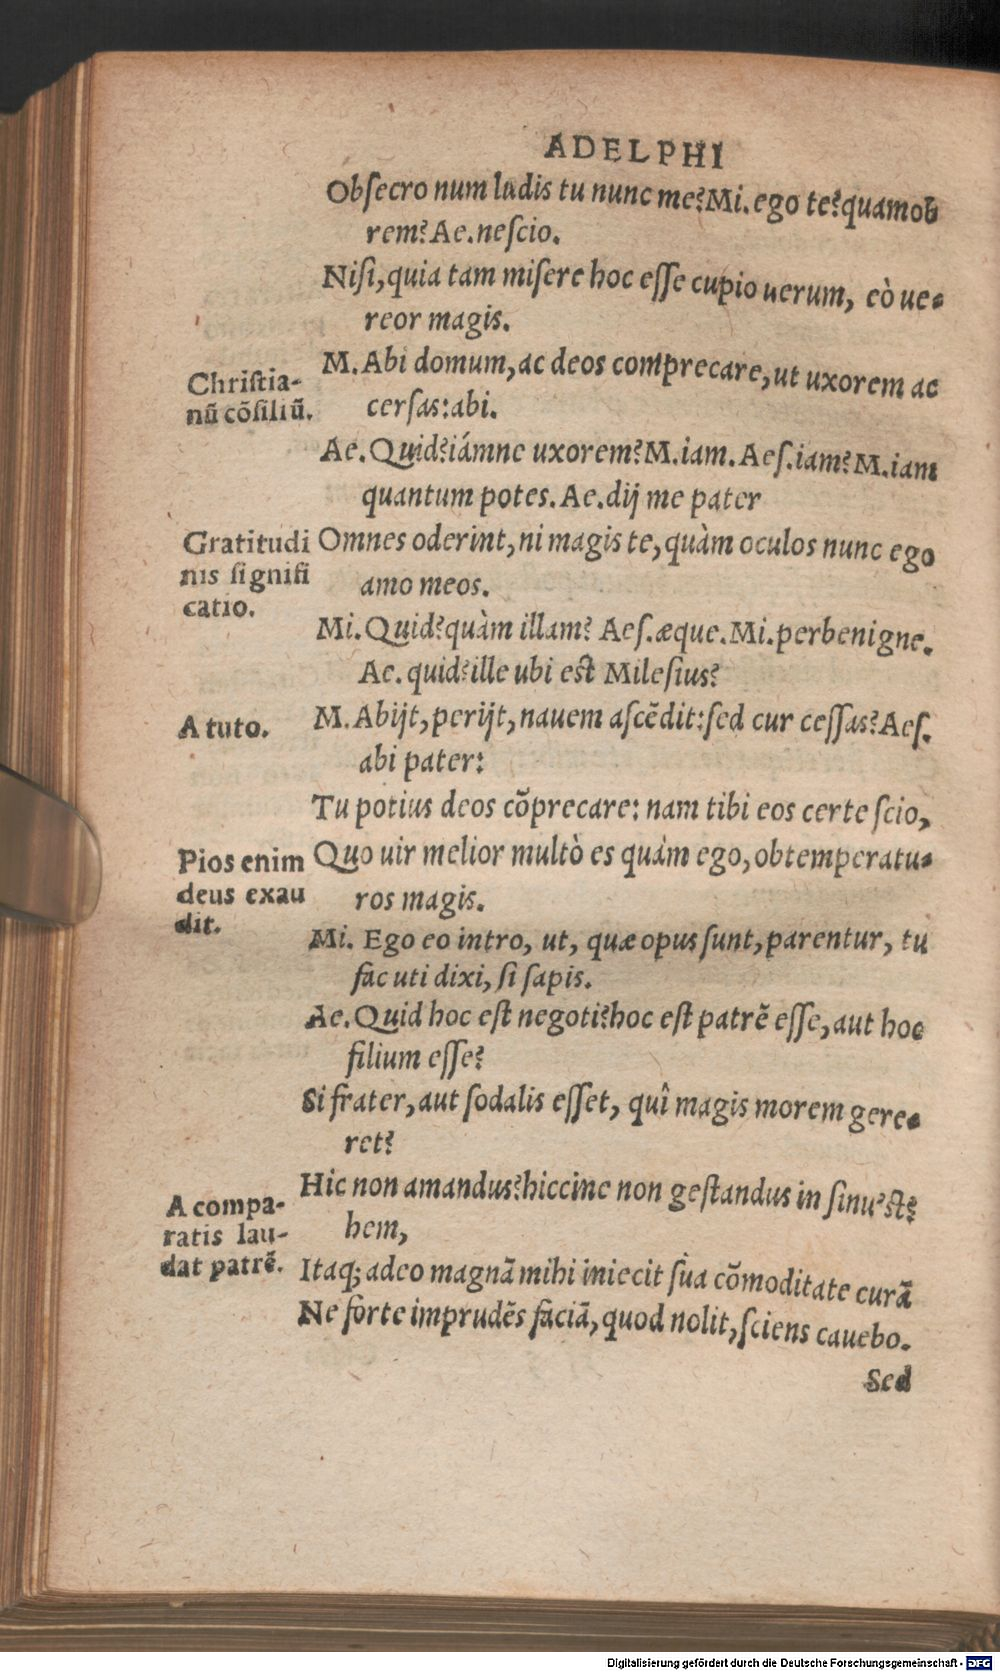 ADELPHI
Obſecro num ludis tu nunc me? Mi. ego te? quamob
rem? Ae. neſcio.
Niſi, quia tam miſere hoc eſſe cupio uerum, eò ue-
reor magis.
M. Abi domum, ac deos comprecare, ut uxorem ac
cerſas: abi.
Chriſtia-
nũ cõſiliũ.
Ae. Quid? iámne uxorem? M. iam. Aeſ. iam? M. iam
quantum potes. Ae. dij me pater
Omnes oderint, ni magis te, quàm oculos nunc ego
amo meos.
Gratitudi
nis ſignifi
catio.
Mi. Quid? quàm illam? Aeſ. æque. Mi. perbenigne.
Ae. quid? ille ubi eſt Mileſius?
M. Abijt, perijt, nauem aſcẽdit: ſed cur ceſſas? Aeſ.
abi pater:
A tuto.
Tu potius deos cõprecare: nam tibi eos certe ſcio,
Quo uir melior multò es quàm ego, obtemperatu-
ros magis.
Pios enim
deus exau
dit.
Mi. Ego eo intro, ut, quæ opus ſunt, parentur, tu
fac uti dixi, ſi ſapis.
Ae. Quid hoc eſt negoti? hoc eſt patrẽ eſſe, aut hoc
filium eſſe?
Si frater, aut ſodalis eſſet, quî magis morem gere-
ret?
Hic non amandus? hiccine non geſtandus in ſinu'ſt?
hem,
A compa-
ratis lau-
dat patrẽ.
Itaq; adeo magnã mihi iniecit ſua cõmoditate curã
Ne forte imprudẽs faciã, quod nolit, ſciens cauebo.
Sed
Digitalisierung gefördert durch die Deutsche Forschungsgemeinschaft - DFG